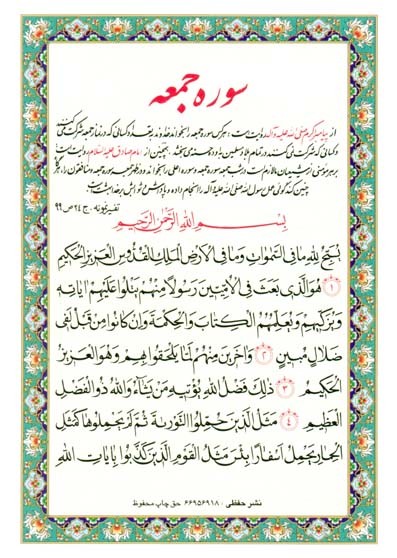 سوره جمعه
از پیامبر اکرم صلی الله علیه و آله روایت است، هر کس سوره جمعه را بخواند خداوند به تعداد کسانی که در نماز جمعه شرکت می‌کنند
و کسانی که شرکت نمی‌کنند در تمام بلاد مسلمین به او ده حسنه می‌بخشد. همچنین از امام صادق علیه السلام روایت است
بر هر مؤمنی از شیعیان ما لازم است در شب جمعه سوره جمعه و سوره اعلی را بخواند و در ظهر جمعه سوره جمعه و منافقون را، هرگاه
چنین کند گوئی عمل رسول الله صلی الله علیه و آله را انجام داده و پاداش و ثوابش بر خدا بهشت است
تفسیر نمونه - ج ۲۴ ص ۹۹
بسم الله الرحمن الرحیم
يُسَبِّحُ لِلّٰهِ مَا فِي السَّمٰوَاتِ وَمَا فِي الْأَرْضِ الْمَلِكِ الْقُدُّوسِ الْعَزِيزِ الْحَكِيمِ
﴿۱﴾ هُوَ الَّذِي بَعَثَ فِي الْأُمِّيِّينَ رَسُولًا مِنْهُمْ يَتْلُوا عَلَيْهِمْ اٰيَاتِهِ
وَيُزَكِّيهِمْ وَيُعَلِّمُهُمُ الْكِتَابَ وَالْحِكْمَةَ وَإِنْ كَانُوا مِنْ قَبْلُ لَفِي
ضَلَالٍ مُبِينٍ ﴿۲﴾ وَاٰخَرِينَ مِنْهُمْ لَمَّا يَلْحَقُوا بِهِمْ وَهُوَ الْعَزِيزُ
الْحَكِيمُ ﴿۳﴾ ذٰلِكَ فَضْلُ اللّٰهِ يُؤْتِيهِ مَنْ يَشَاءُ وَاللّٰهُ ذُو الْفَضْلِ
الْعَظِيمِ ﴿۴﴾ مَثَلُ الَّذِينَ حُمِّلُوا التَّوْرٰيةَ ثُمَّ لَمْ يَحْمِلُوهَا كَمَثَلِ
الْحِمَارِ يَحْمِلُ أَسْفَارًا بِئْسَ مَثَلُ الْقَوْمِ الَّذِينَ كَذَّبُوا بِاٰيَاتِ اللّٰهِ
نشر حفظی : ۶۶۹۵۶۹۱۸ حق چاپ محفوظ